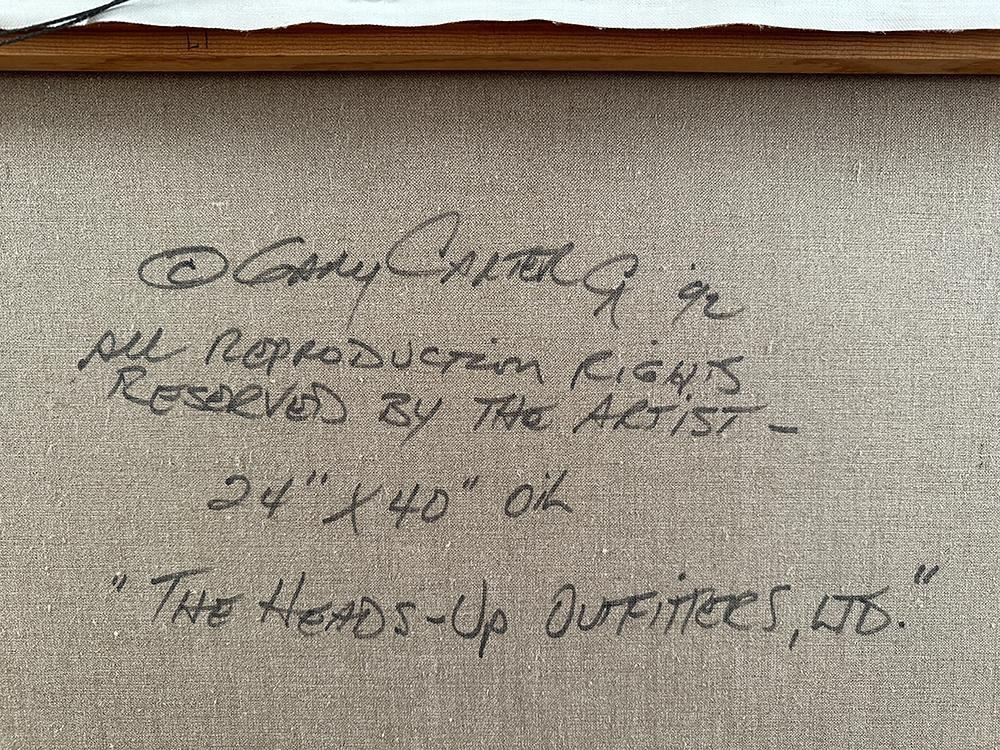 © GARY CARTER CA '92
ALL REPRODUCTION RIGHTS
RESERVED BY THE ARTIST –
24" X 40" OIL
"THE HEADS-UP OUTFITTERS, LTD."